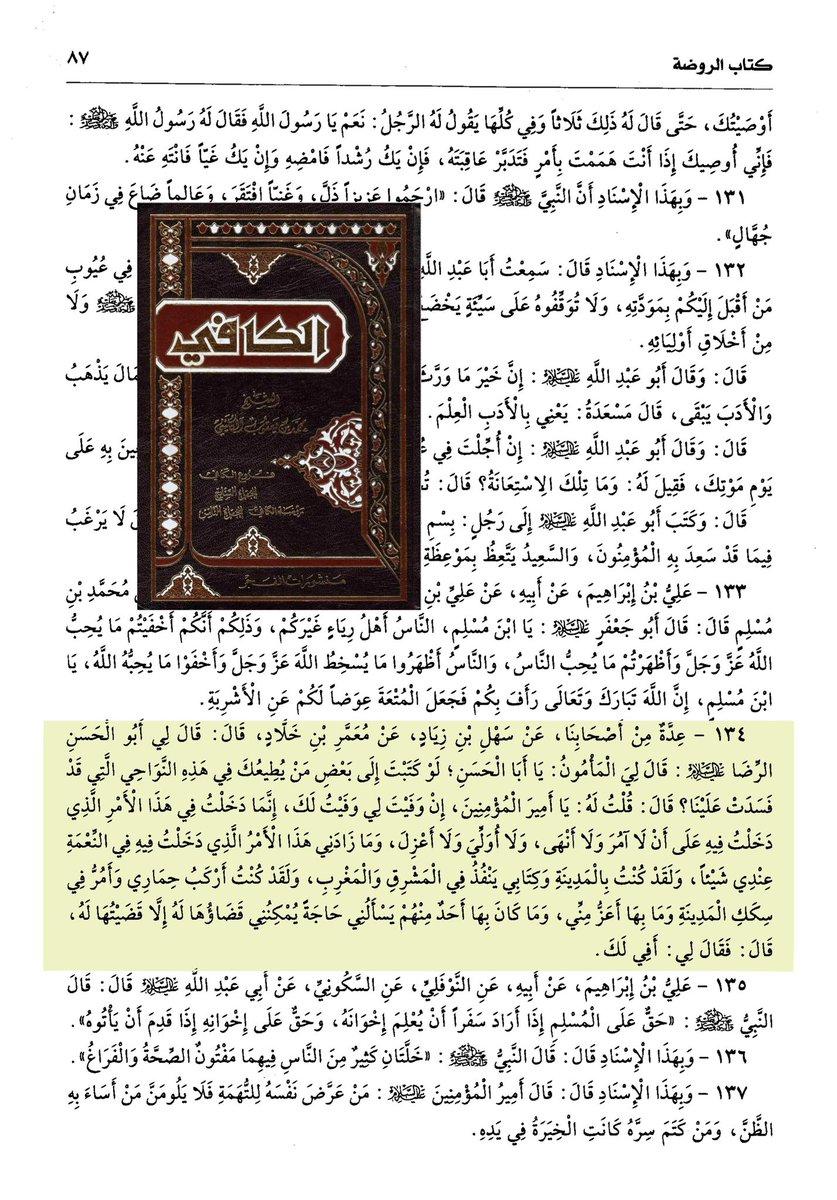 كتاب الروضة
٨٧
أَوْصَيْتُكَ، حَتَّى قَالَ لَهُ ذَلِكَ ثَلَاثاً وَفِي كُلِّهَا يَقُولُ لَهُ الرَّجُلُ: نَعَمْ يَا رَسُولَ اللَّهِ فَقَالَ لَهُ رَسُولُ اللَّهِ ﷺ :
فَإِنِّي أُوصِيكَ إِذَا أَنْتَ هَمَمْتَ بِأَمْرٍ فَتَدَبَّرْ عَاقِبَتَهُ، فَإِنْ يَكُ رُشْداً فَامْضِهِ وَإِنْ يَكُ غَيّاً فَانْتَهِ عَنْهُ.
١٣١ - وَبِهَذَا الْإِسْنَادِ أَنَّ النَّبِيَّ ﷺ قَالَ: «ارْحَمُوا عَزِيزاً ذَلَّ، وَغَنِيّاً افْتَقَرَ، وَعَالِماً ضَاعَ فِي زَمَانِ
جُهَّالٍ».
١٣٢ - وَبِهَذَا الْإِسْنَادِ قَالَ: سَمِعْتُ أَبَا عَبْدِ اللَّهِ فِي عُيُوبِ
مَنْ أَقْبَلَ إِلَيْكُمْ بِمَوَدَّتِهِ، وَلَا تُوَقِّفُوهُ عَلَى سَيِّئَةٍ يَخْضَعُ ﷺ وَلَا
مِنْ أَخْلَاقِ أَوْلِيَائِهِ.
قَالَ: وَقَالَ أَبُو عَبْدِ اللَّهِ عليه السلام : إِنَّ خَيْرَ مَا وَرَّثَ يَذْهَبُ
وَالْأَدَبَ يَبْقَى، قَالَ مَسْعَدَةُ: يَعْنِي بِالْأَدَبِ الْعِلْمَ.
قَالَ: وَقَالَ أَبُو عَبْدِ اللَّهِ عليه السلام : إِنْ أُجِّلْتَ فِي بِهِ عَلَى
يَوْمِ مَوْتِكَ، فَقِيلَ لَهُ: وَمَا تِلْكَ الِاسْتِعَانَةُ؟ قَالَ:
قَالَ: وَكَتَبَ أَبُو عَبْدِ اللَّهِ عليه السلام إِلَى رَجُلٍ: بِسْمِ لَا يَرْغَبُ
فِيمَا قَدْ سَعِدَ بِهِ الْمُؤْمِنُونَ، وَالسَّعِيدُ يَتَّعِظُ بِمَوْعِظَةِ
١٣٣ - عَلِيُّ بْنُ إِبْرَاهِيمَ، عَنْ أَبِيهِ، عَنْ عَلِيِّ بْنِ مُحَمَّدِ بْنِ
مُسْلِمٍ قَالَ: قَالَ أَبُو جَعْفَرٍ عليه السلام : يَا ابْنَ مُسْلِمٍ، النَّاسُ أَهْلُ رِيَاءٍ غَيْرَكُمْ، وَذَلِكُمْ أَنَّكُمْ أَخْفَيْتُمْ مَا يُحِبُّ
اللَّهُ عَزَّ وَجَلَّ وَأَظْهَرْتُمْ مَا يُحِبُّ النَّاسُ، وَالنَّاسُ أَظْهَرُوا مَا يُسْخِطُ اللَّهَ عَزَّ وَجَلَّ وَأَخْفَوْا مَا يُحِبُّهُ اللَّهُ، يَا
ابْنَ مُسْلِمٍ، إِنَّ اللَّهَ تَبَارَكَ وَتَعَالَى رَأَفَ بِكُمْ فَجَعَلَ الْمُتْعَةَ عِوَضاً لَكُمْ عَنِ الْأَشْرِبَةِ.
١٣٤ - عِدَّةٌ مِنْ أَصْحَابِنَا، عَنْ سَهْلِ بْنِ زِيَادٍ، عَنْ مُعَمَّرِ بْنِ خَلَّادٍ، قَالَ: قَالَ لِي أَبُو الْحَسَنِ
الرِّضَا عليه السلام : قَالَ لِيَ الْمَأْمُونُ: يَا أَبَا الْحَسَنِ؛ لَوْ كَتَبْتَ إِلَى بَعْضِ مَنْ يُطِيعُكَ فِي هَذِهِ النَّوَاحِي الَّتِي قَدْ
فَسَدَتْ عَلَيْنَا؟ قَالَ: قُلْتُ لَهُ: يَا أَمِيرَ الْمُؤْمِنِينَ، إِنْ وَفَيْتَ لِي وَفَيْتُ لَكَ، إِنَّمَا دَخَلْتُ فِي هَذَا الْأَمْرِ الَّذِي
دَخَلْتُ فِيهِ عَلَى أَنْ لَا آمُرَ وَلَا أَنْهَى، وَلَا أُوَلِّيَ وَلَا أَعْزِلَ، وَمَا زَادَنِي هَذَا الْأَمْرُ الَّذِي دَخَلْتُ فِيهِ فِي النِّعْمَةِ
عِنْدِي شَيْئاً، وَلَقَدْ كُنْتُ بِالْمَدِينَةِ وَكِتَابِي يَنْفُذُ فِي الْمَشْرِقِ وَالْمَغْرِبِ، وَلَقَدْ كُنْتُ أَرْكَبُ حِمَارِي وَأَمُرُّ فِي
سِكَكِ الْمَدِينَةِ وَمَا بِهَا أَعَزُّ مِنِّي، وَمَا كَانَ بِهَا أَحَدٌ مِنْهُمْ يَسْأَلُنِي حَاجَةً يُمْكِنُنِي قَضَاؤُهَا لَهُ إِلَّا قَضَيْتُهَا لَهُ،
قَالَ: فَقَالَ لِي: أَفِي لَكَ.
١٣٥ - عَلِيُّ بْنُ إِبْرَاهِيمَ، عَنْ أَبِيهِ، عَنِ النَّوْفَلِيِّ، عَنِ السَّكُونِيِّ، عَنْ أَبِي عَبْدِ اللَّهِ عليه السلام قَالَ: قَالَ
النَّبِيُّ ﷺ : «حَقٌّ عَلَى الْمُسْلِمِ إِذَا أَرَادَ سَفَراً أَنْ يُعْلِمَ إِخْوَانَهُ، وَحَقٌّ عَلَى إِخْوَانِهِ إِذَا قَدِمَ أَنْ يَأْتُوهُ».
١٣٦ - وَبِهَذَا الْإِسْنَادِ قَالَ: قَالَ النَّبِيُّ ﷺ : «خَلَّتَانِ كَثِيرٌ مِنَ النَّاسِ فِيهِمَا مَفْتُونٌ الصِّحَّةُ وَالْفَرَاغُ».
١٣٧ - وَبِهَذَا الْإِسْنَادِ قَالَ: قَالَ أَمِيرُ الْمُؤْمِنِينَ عليه السلام : مَنْ عَرَّضَ نَفْسَهُ لِلتُّهَمَةِ فَلَا يَلُومَنَّ مَنْ أَسَاءَ بِهِ
الظَّنَّ، وَمَنْ كَتَمَ سِرَّهُ كَانَتِ الْخِيَرَةُ فِي يَدِهِ.
الكافي
الشيخ
محمد بن يعقوب الكليني
فروع الكافي
الجزء السابع
روضة الكافي الجزء الثامن
منشورات الفجر